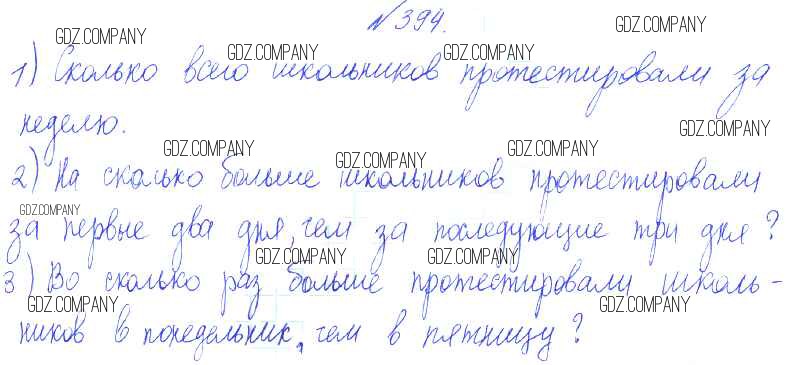 № 394.
GDZ.COMPANY
GDZ.COMPANY GDZ.COMPANY
1) Сколько всего школьников протестировали за
GDZ.COMPANY GDZ.COMPANY
неделю.
GDZ.COMPANY
GDZ.COMPANY GDZ.COMPANY GDZ.COMPANY
2) На сколько больше школьников протестировали
GDZ.COMPANY
за первые два дня, чем за последующие три дня?
GDZ.COMPANY GDZ.COMPANY
3) Во сколько раз больше протестировали школь-
GDZ.COMPANY GDZ.COMPANY GDZ.COMPANY
ников в понедельник, чем в пятницу?